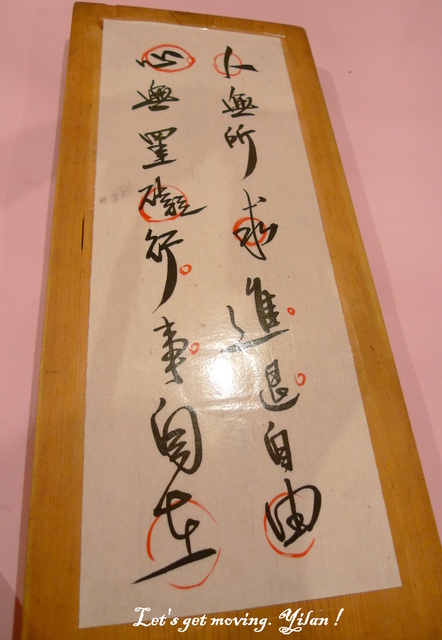 人無所求進退自由
心無罣礙行事自在
Let's get moving. Yilan !